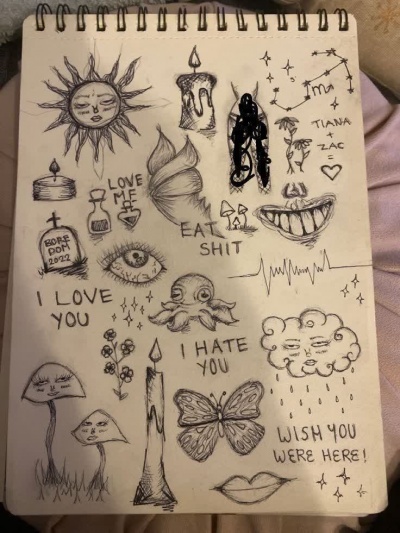 m
TIANA
+
ZAC
=
LOVE
ME
EAT
SHIT
BORE
DOM
2022
I LOVE
YOU
I HATE
YOU
WISH YOU
WERE HERE!